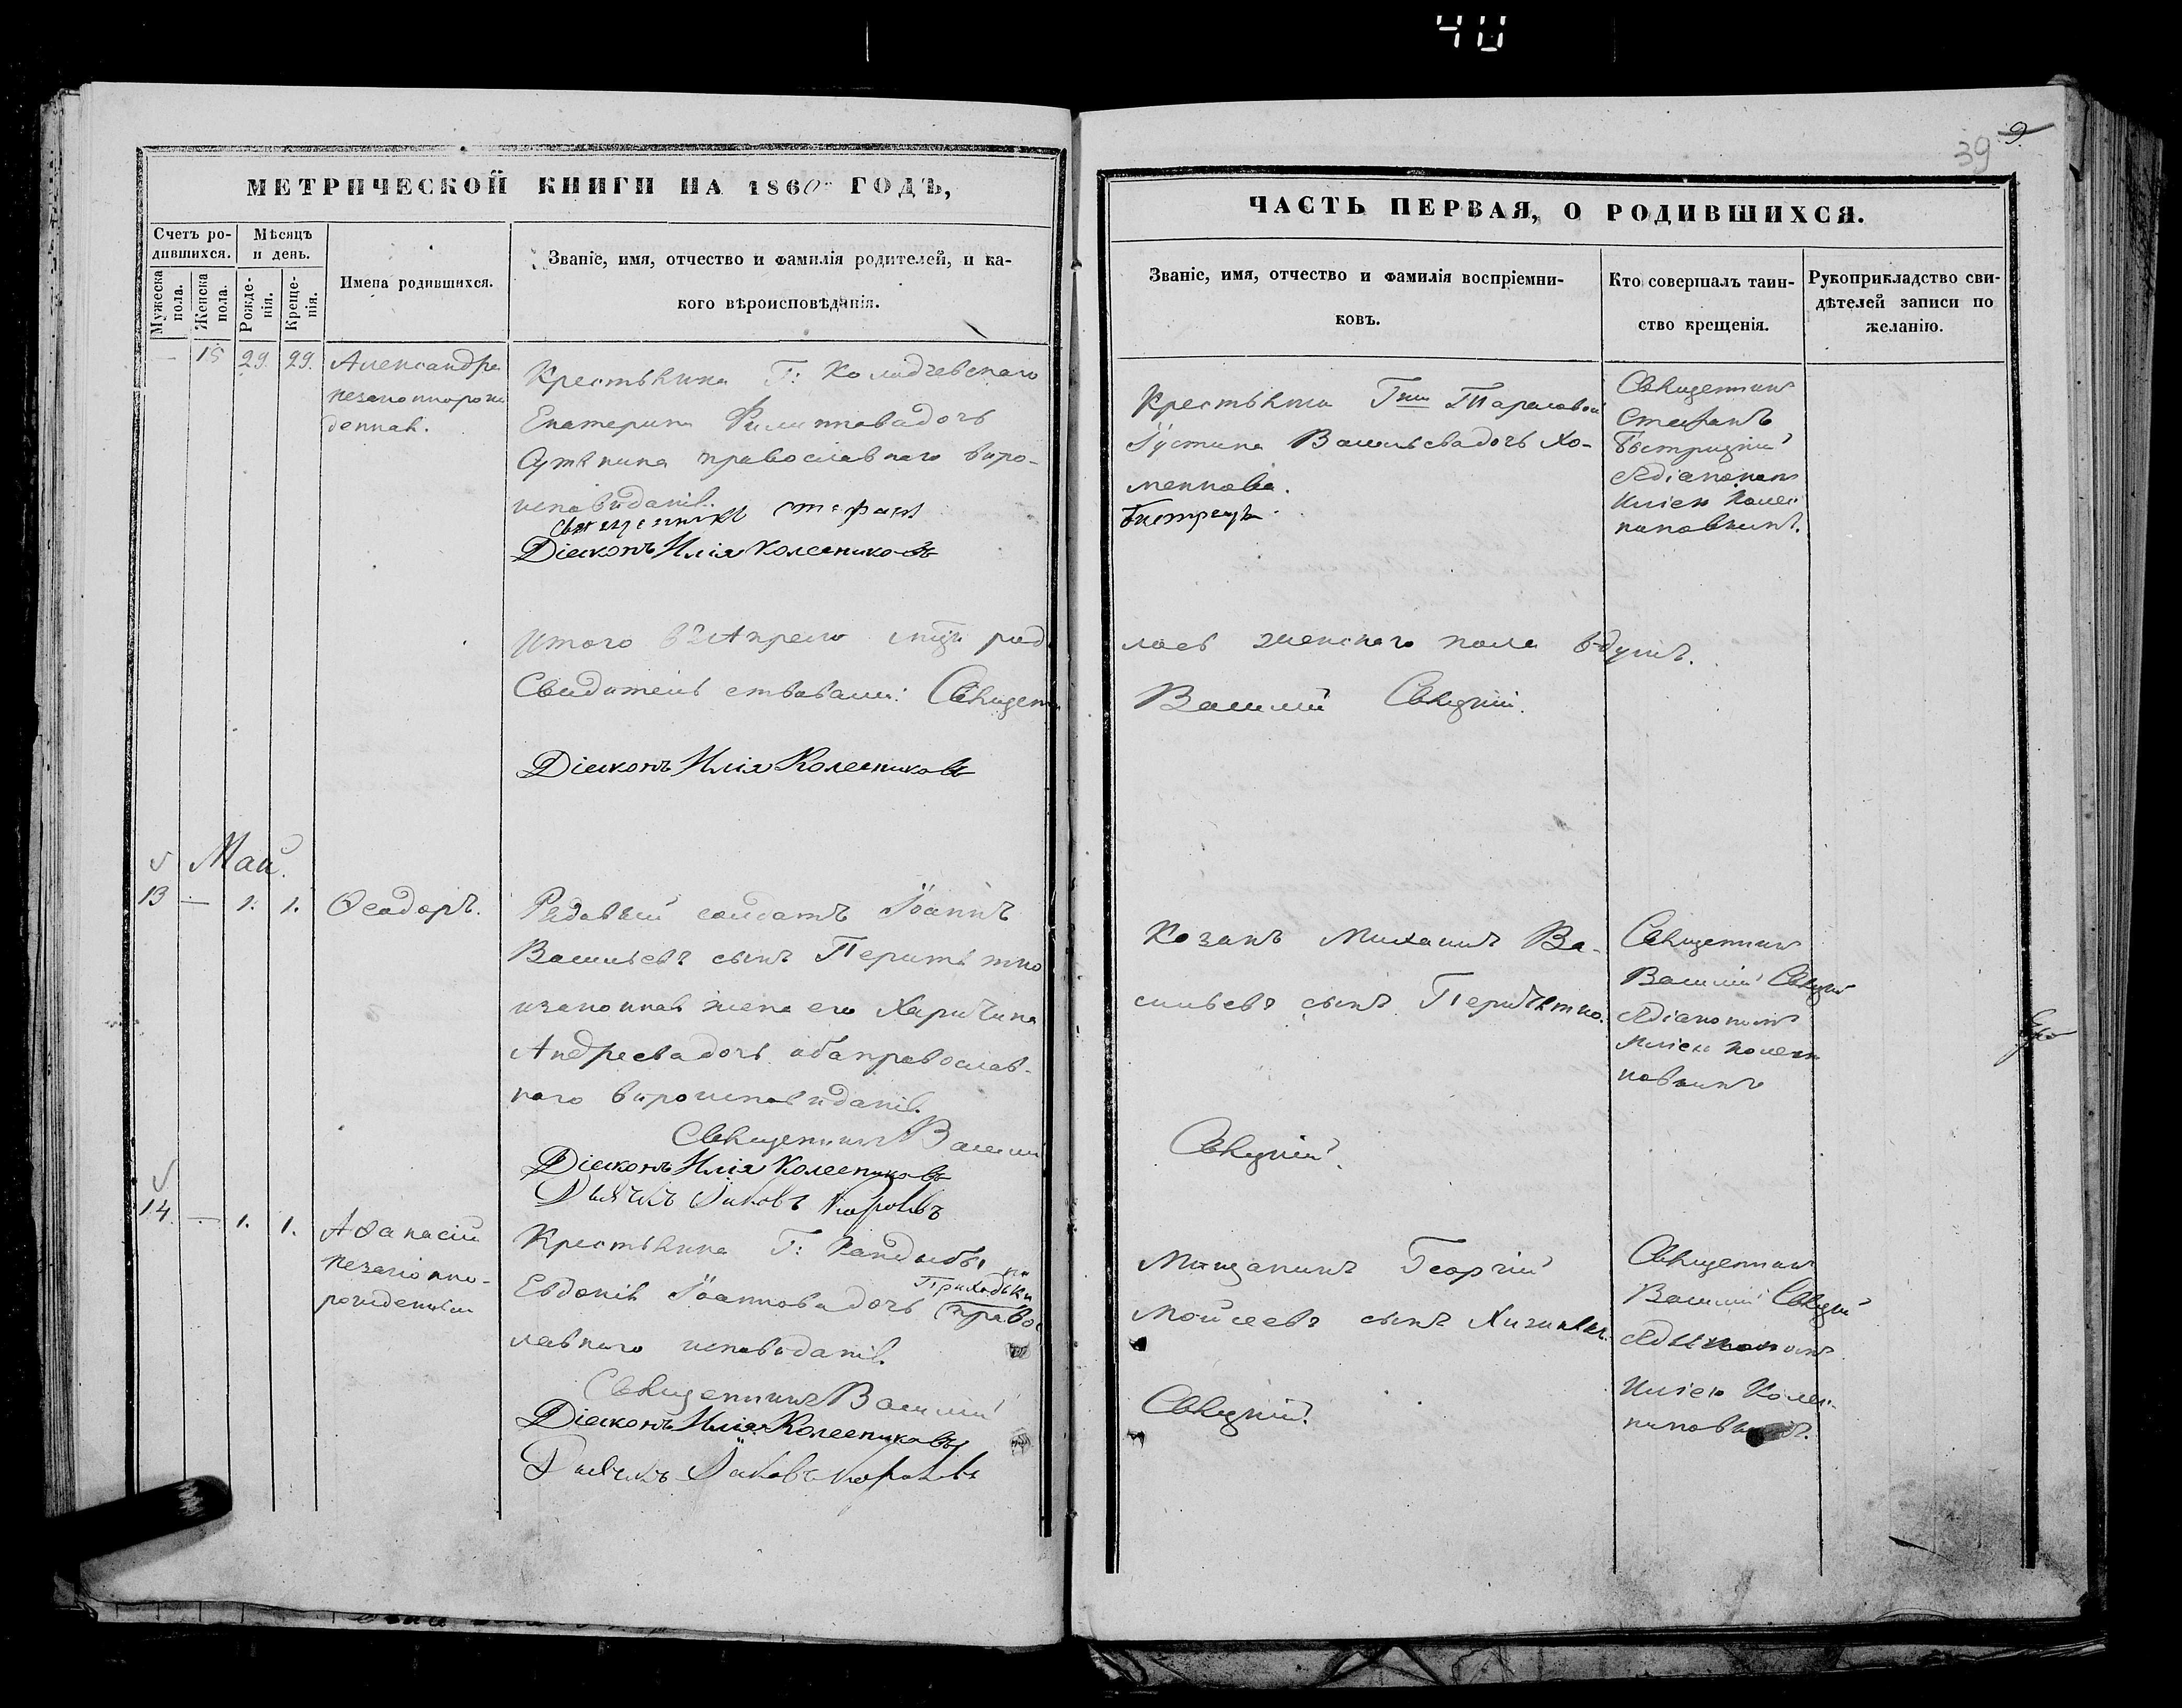 40
39 9.
МЕТРИЧЕСКОЙ КНИГИ НА 1860 ГОДЪ,
Счетъ ро-
дившихся.
Мѣсяцъ
и день.
Мужеска
пола.
Женска
пола.
Рожде-
нія.
Креще-
нія.
Имена родившихся.
Званіе, имя, отчество и фамилія родителей, и ка-
кого вѣроисповѣданія.
— 15 29. 29.
Александра
незаконнорож
денная.
Крестьянка Г:
Екатерина Филиппова дочь
православнаго вѣро-
исповѣданія.
Священникъ Стефанъ
Діаконъ Илія Колесниковъ
Итого въ Апрелѣ мцѣ роди
Свидѣтельствовали: Священ
Діаконъ Илія Колесниковъ
Май.
13 — 1. 1.
Ѳеодоръ.
Рядовый солдатъ Іоаннъ
Васильевъ сынъ
изаконная жена его Харитина
Андреева дочь оба православ-
наго вѣроисповѣданія.
Священникъ Василій
Діаконъ Илія Колесниковъ
Дьячекъ Іаковъ
14. — 1. 1.
Аѳанасій
незаконно-
рожденный
Крестьянка Г:
Евдокія Іоаннова дочь Приходьки
правос
лавнаго исповѣданія.
Священникъ Василій
Діаконъ Илія Колесниковъ
Дьячекъ Іаковъ
ЧАСТЬ ПЕРВАЯ, О РОДИВШИХСЯ.
Званіе, имя, отчество и фамилія воспріемни-
ковъ.
Кто совершалъ таин-
ство крещенія.
Рукоприкладство сви-
дѣтелей записи по
желанію.
Крестьянка Гжи Тарасовой
Іустина Васильева дочь Хо-
менкова.
Быстрицкій
Священникъ
Стефанъ
Быстрицкій
сдіакономъ
Иліею Колес
никовымъ.
лось женскаго пола душъ.
Василій
Козакъ Михаилъ Ва-
сильевъ сынъ
Священникъ
Василій
сдіакономъ
Иліею Колесни
ковымъ
Мѣщанинъ Георгій
Моисеевъ сынъ
Священникъ
Василій
сдіакономъ
Иліею Колес-
никовымъ.